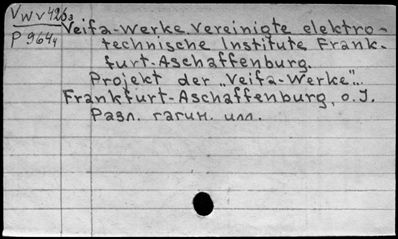 VwV 426₃
P 964₄
Veifa-Werke. Vereinigte elektro-
technische Institute Frank-
furt-Aschaffenburg.
Projekt der „Veifa-Werke"..
Frankfurt-Aschaffenburg, o. J.
Разл. пагин. илл.